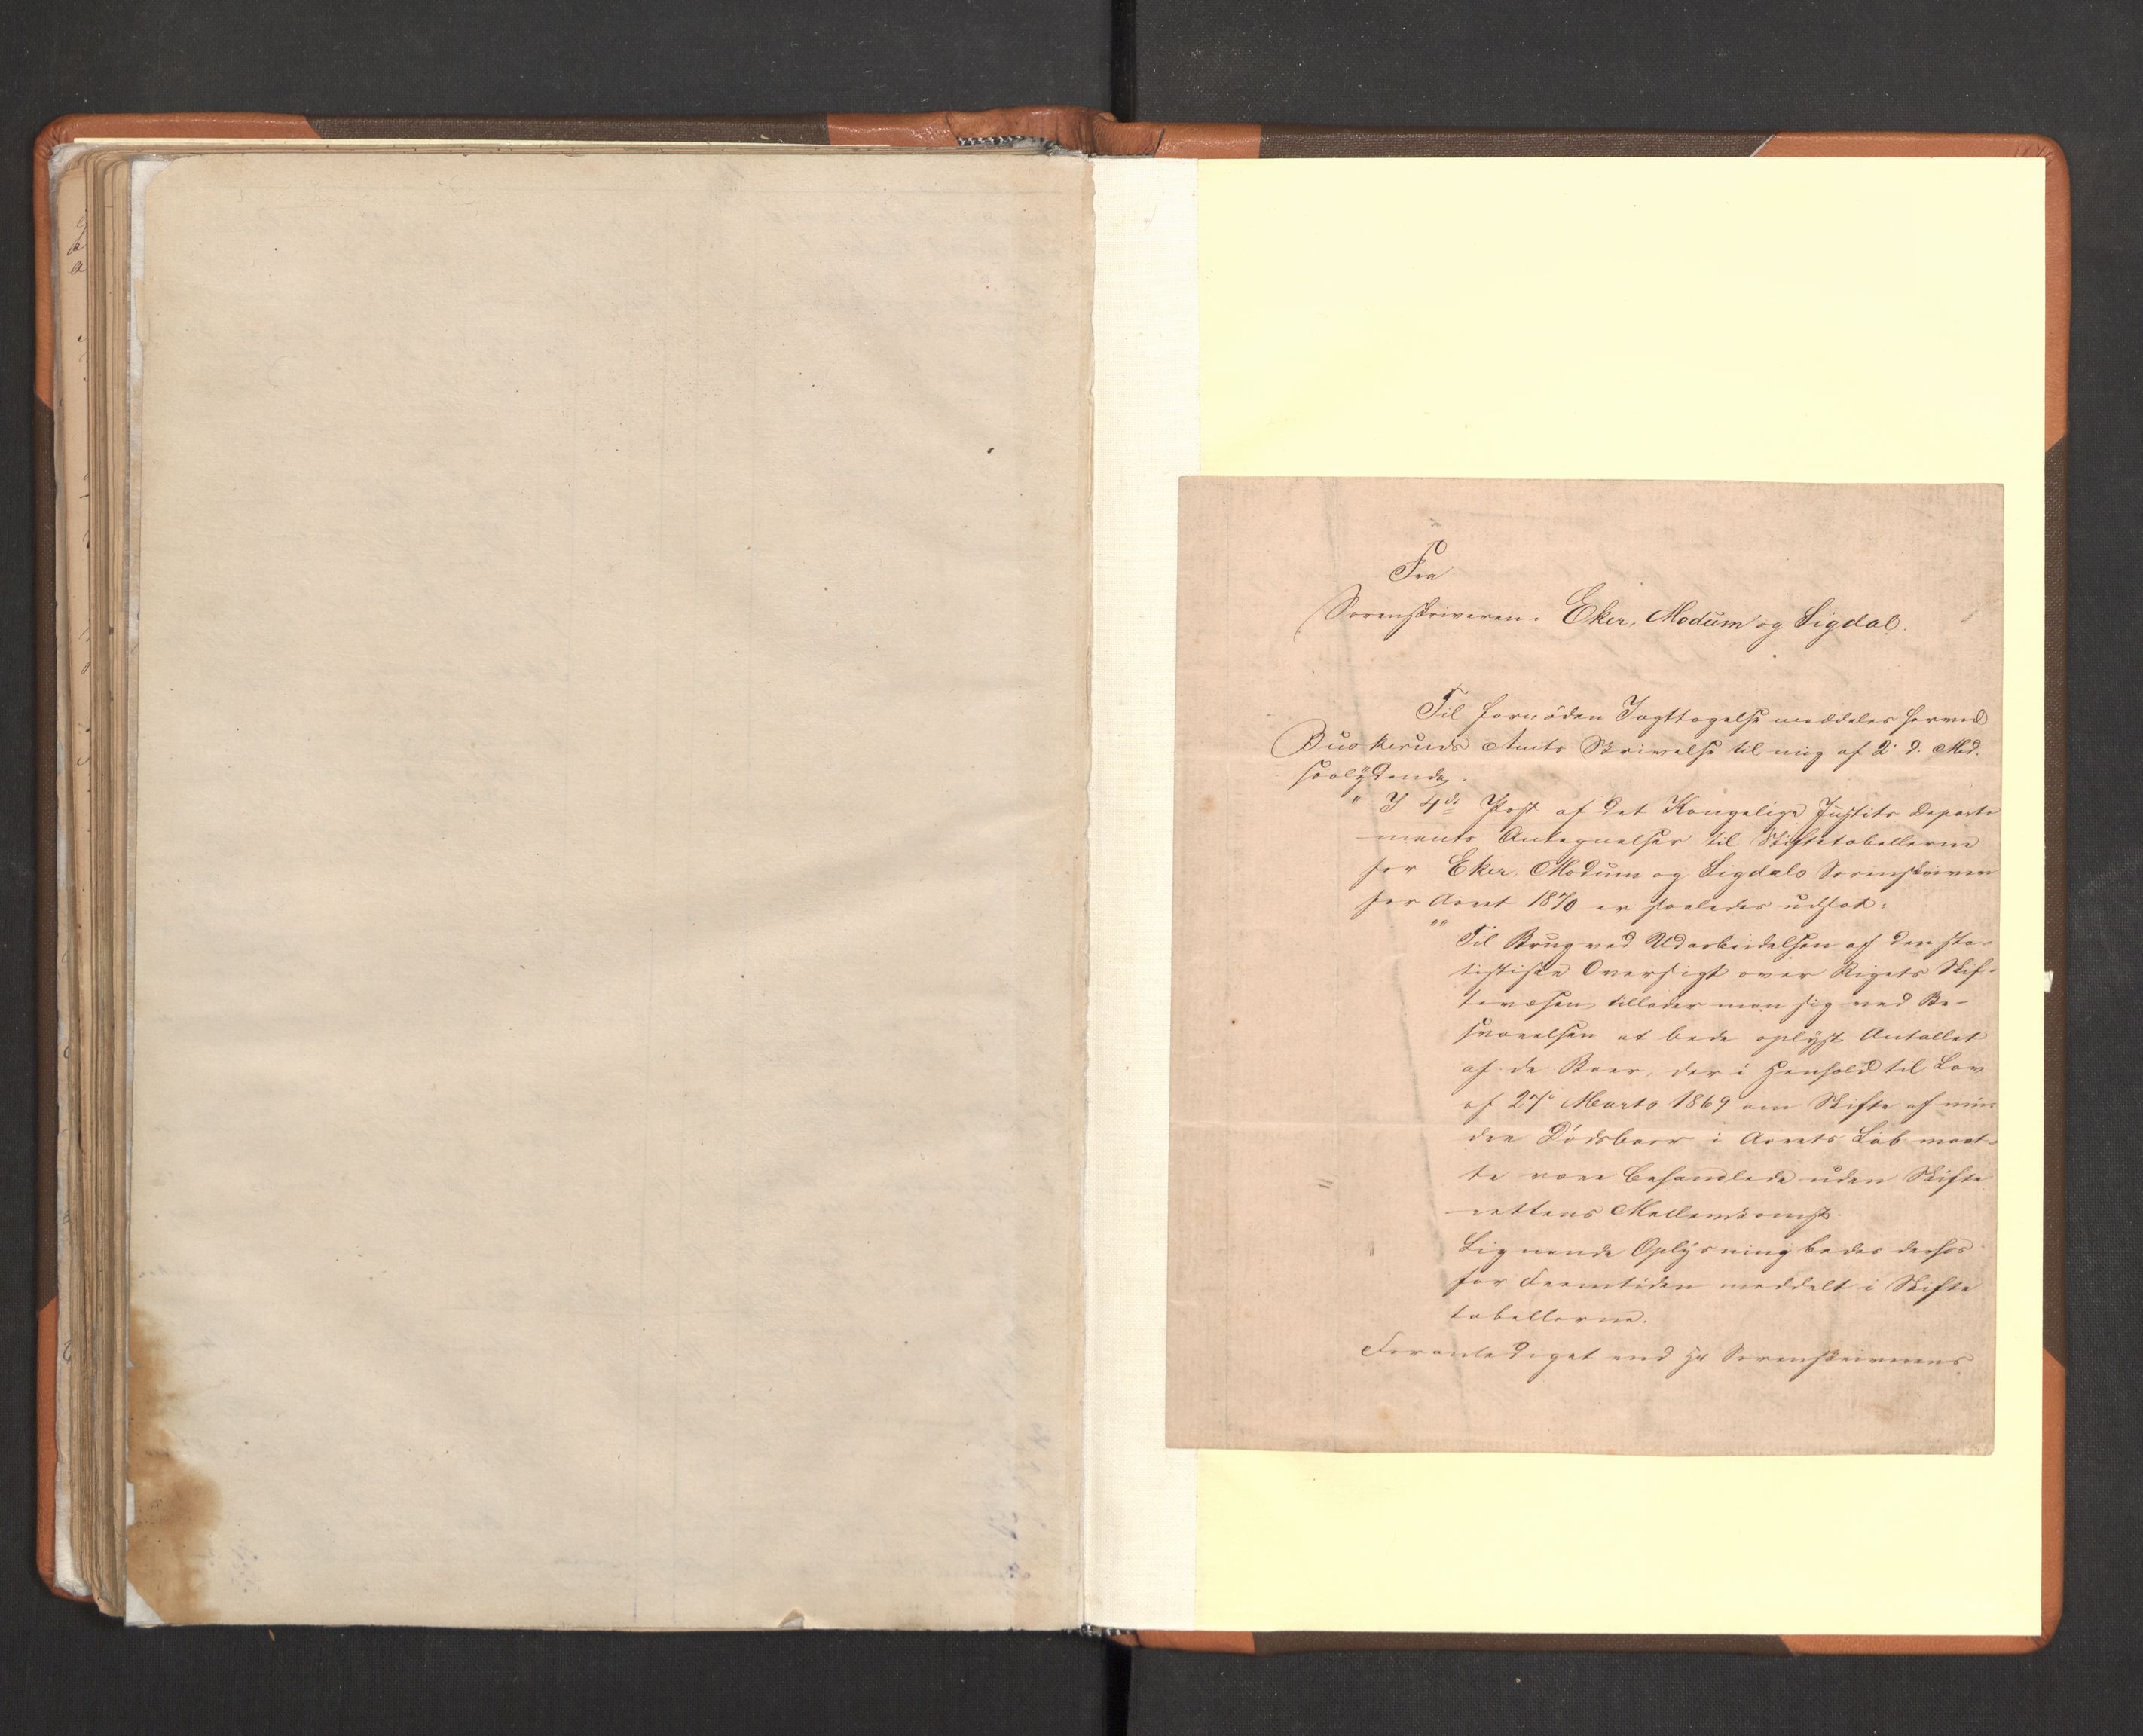 Fra
Sorenskriveren i Eker, Modum og Sigdal.
Til fornöden Iagttagelse meddeles herved
Buskeruds Amts Skrivelse til mig af 2 d. Md.
saalydende:
" I 4de Post af det Kongelige Justits Departe
ments Antegnelser til Skiftetabellerne
for Eker, Modum og Sigdals Sorenskriveri
for Aaret 1870 er saaledes udsat:
"" Til Brug ved Udarbeidelsen af den sta-
tistiske Oversigt over Rigets Skif-
tevæsen tillader man sig ved Be-
svarelsen at bede oplyst Antallet
af de Boer, der i Henhold til Lov
af 27 Marts 1869 om Skifte af min-
dre Dödsboer i Aarets Löb maat-
te være behandlede uden Skifte
rettens Mellemkomst.
Lignende Oplysning bedes derhos
for Fremtiden meddelt i Skifte
tabellerne.
Foranlediget ved Hr Sorenskriverens